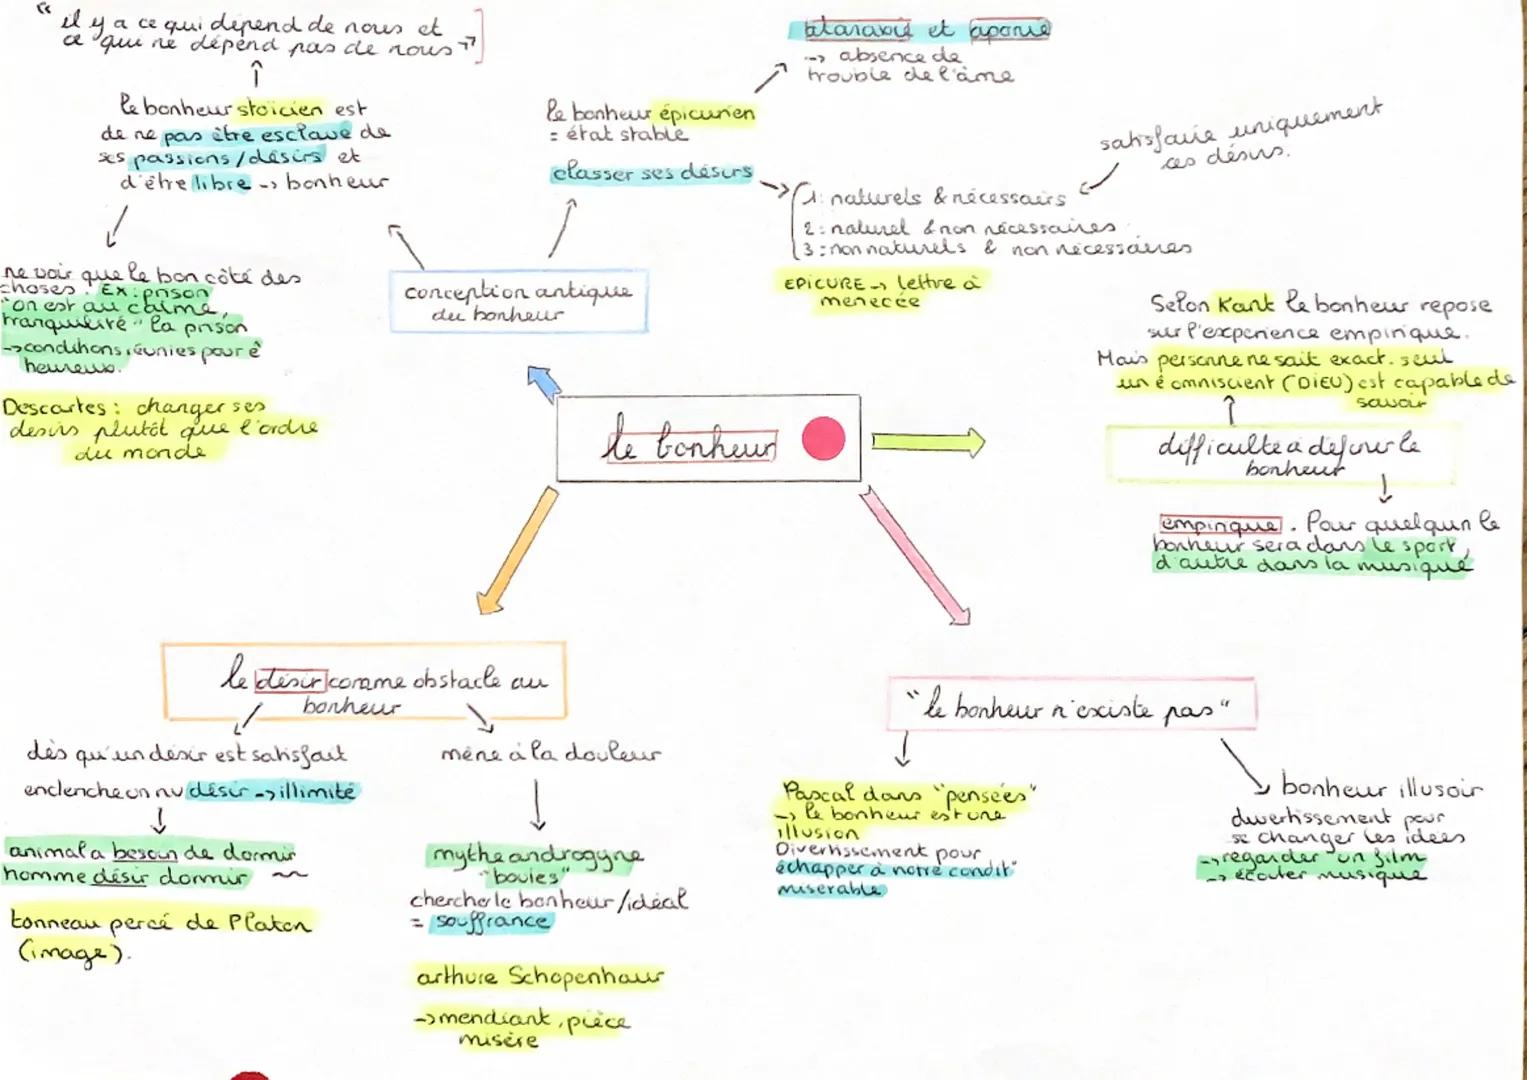 " il y a ce qui dépend de nous et
ce qui ne dépend pas de nous "
le bonheur stoïcien est
de ne pas être esclave de
ses passions / désirs et
d'être libre -> bonheur
ne voir que le bon côté des
choses. Ex: prison
"on est au calme,
tranquilité" la prison
-> conditions réunies pour ê
heureux.
Descartes: changer ses
désirs plutôt que l'ordre
du monde
le bonheur épicurien
= état stable
classer ses désirs
ataraxie et aponie
-> absence de
trouble de l'âme
satisfaire uniquement
ces désirs.
1: naturels & nécessairs
2: naturel & non nécessaires
3: non naturels & non nécessaires
EPICURE -> lettre à
menecée
conception antique
du bonheur
Selon Kant le bonheur repose
sur l'experience empirique.
Mais personne ne sait exact. seul
un ê omniscient (DIEU) est capable de
savoir
le bonheur
difficulté à définir le
bonheur
empirique. Pour quelqun le
bonheur sera dans le sport,
d'autre dans la musique
le désir comme obstacle au
bonheur
dès qu'un désir est satisfait
enclenche un nv désir -> illimité
animal a besoin de dormir
homme désir dormir
tonneau percé de Platon
(image).
mène à la douleur
mythe androgyne
"boules"
chercher le bonheur/idéal
= souffrance
arthure Schopenhaur
-> mendiant, pièce
misère
"le bonheur n'existe pas"
Pascal dans "pensées"
-> le bonheur est une
illusion
Divertissement pour
échapper à notre condit°
miserable
bonheur illusoir
divertissement pour
se changer les idées
-> regarder un film
-> écouter musique